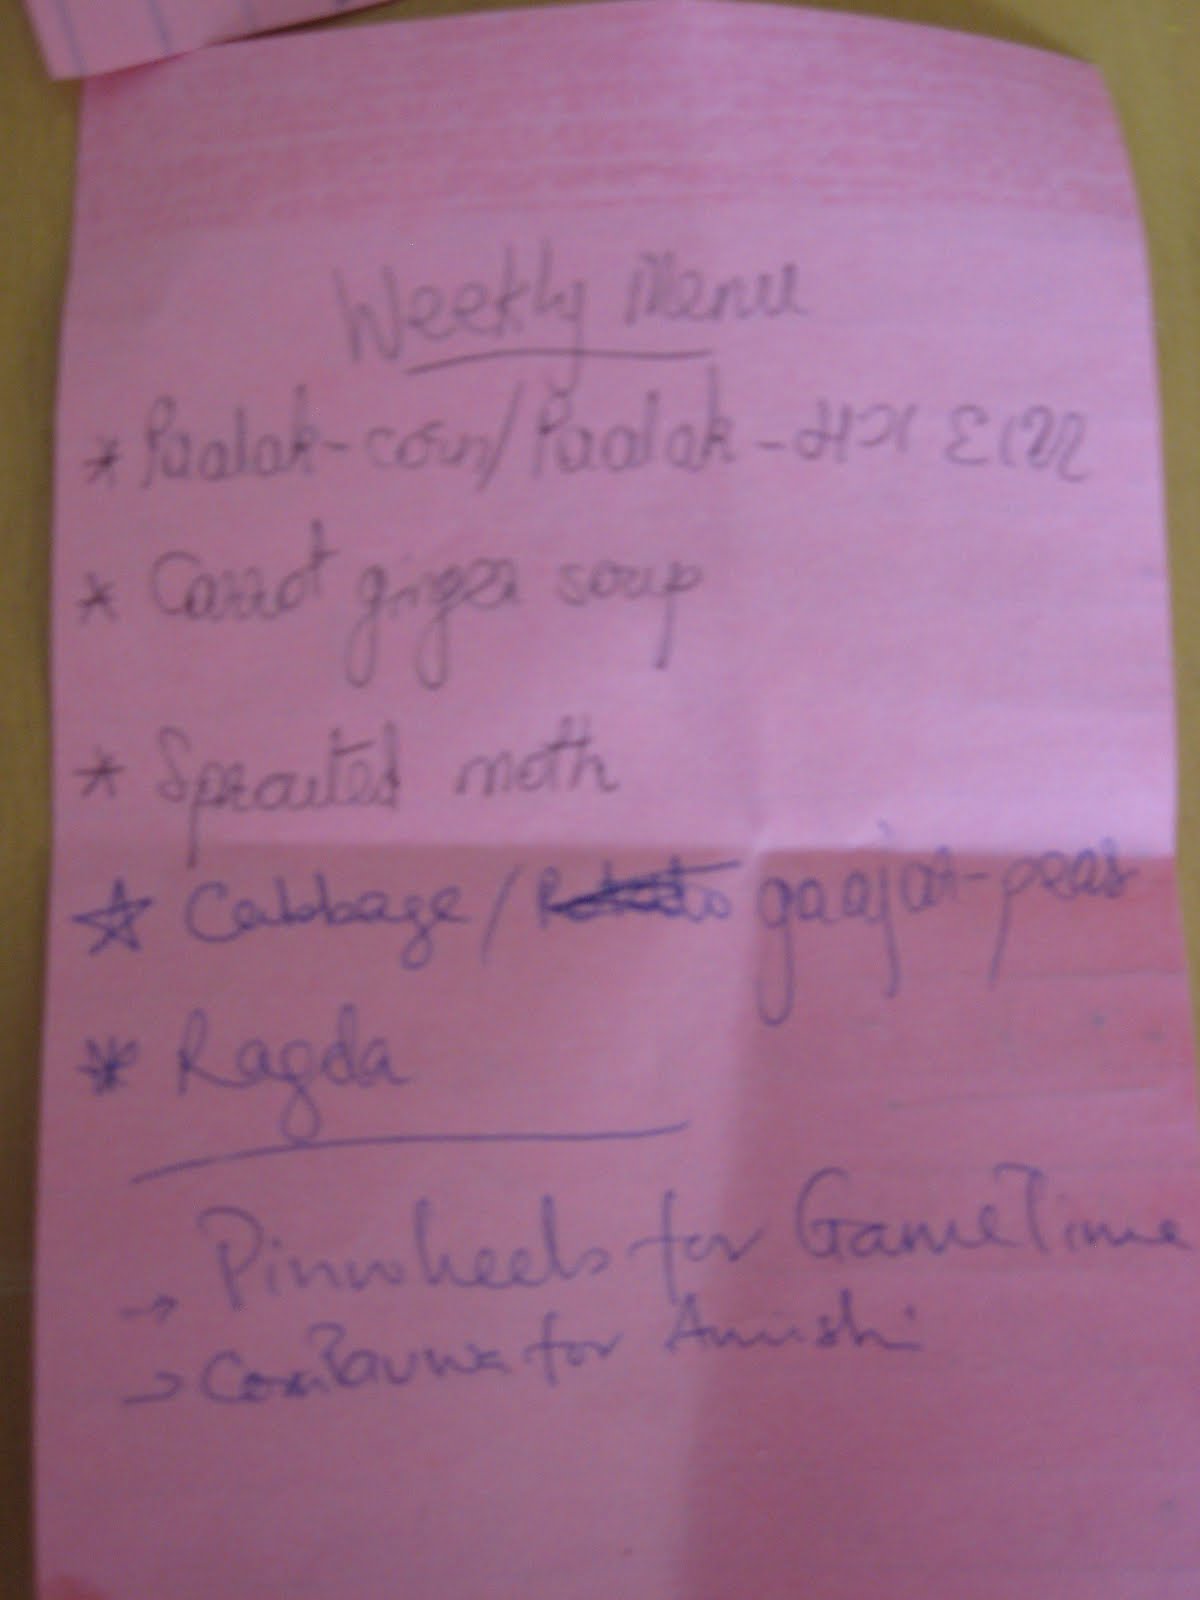 Weekly Menu
* Paalak-corn/Paalak-મગ દાળ
* Carrot ginger soup
* Sprouted moth
☆ Cabbage/ gaajar-peas
* Ragda
→ Pinwheels for GameTime
→ for Amishi